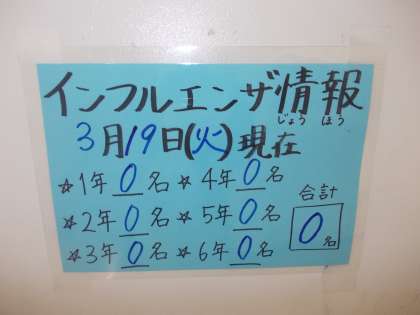 インフルエンザ情報
じょうほう
3月19日(火)現在
☆1年0名☆4年0名
合計
☆2年0名☆5年0名
0名
☆3年0名☆6年0名